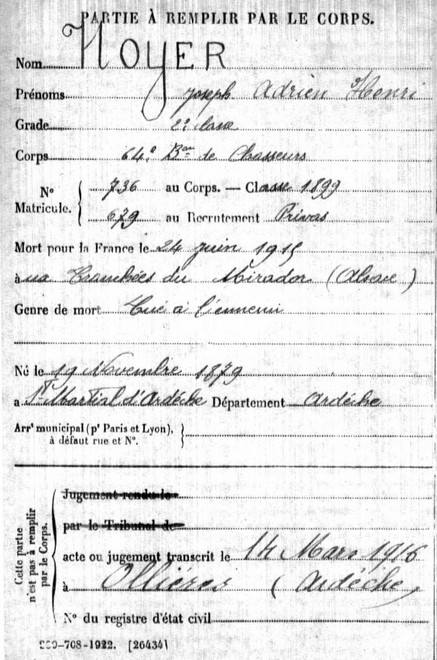 PARTIE À REMPLIR PAR LE CORPS.
Nom NOYER
Prénoms Joseph Adrien Henri
Grade 2e classe
Corps 64e Bon de Chasseurs
N° Matricule. { 736 au Corps. — Classe 1899
679 au Recrutement Privas
Mort pour la France le 24 juin 1915
à ua Tranchées du Mirador (Alsace)
Genre de mort Tué à l'ennemi
Né le 19 Novembre 1879
à St Martial d'Ardèche Département Ardèche
Arrt municipal (pr Paris et Lyon), à défaut rue et N°. }
Cette partie n'est pas à remplir par le Corps. {
Jugement rendu le
par le Tribunal de
acte ou jugement transcrit le 14 Mars 1916
à Ollières (Ardèche)
N° du registre d'état civil
-708-1922. [26434]